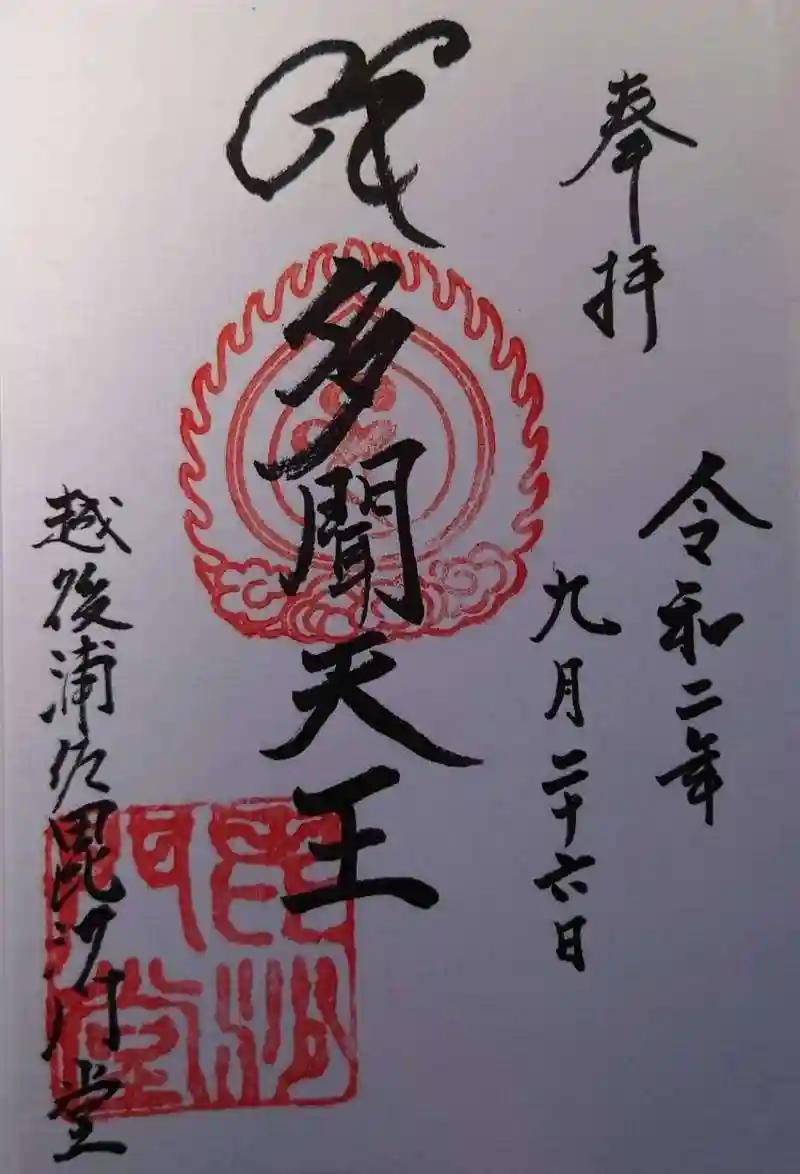 奉拝
令和二年
九月二十六日
多聞天王
越後浦佐毘沙门堂
毘沙門堂